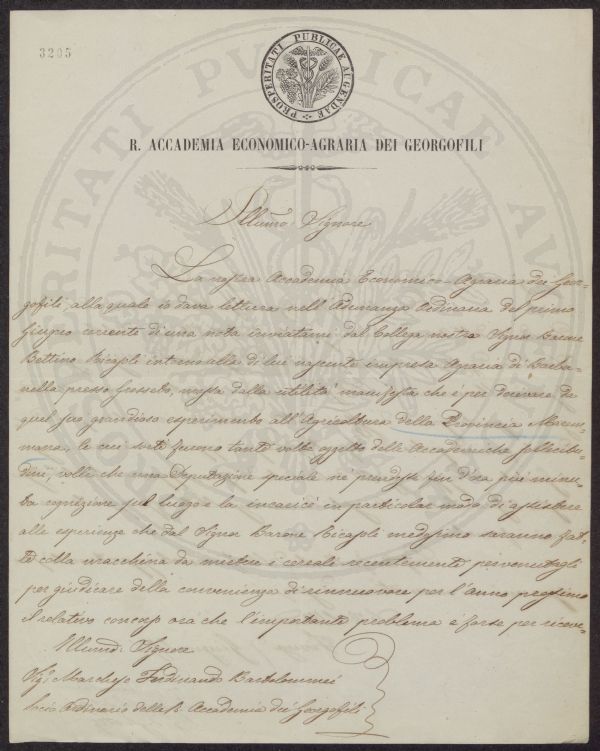 3205
PROSPERITATI PUBLICAE AUGENDAE
R. ACCADEMIA ECONOMICO-AGRARIA DEI GEORGOFILI
Illmo Signore
La nostra Accademia Economico-Agraria dei Geor-
gofili, alla quale io dava lettura nell'Adunanza Ordinaria del primo
Giugno corrente di una nota inviatami dal Collega nostro Signor Barone
Bettino Ricasoli intorno alla di lui nascente impresa Agraria di Barba-
nella presso Grosseto, mossa dalla utilità manifesta che è per derivare da
quel suo grandioso esperimento all'Agricoltura della Provincia Marem-
mana, le cui sorti furono tante volte oggetto delle Accademiche sollecitu-
dini, volle che una Deputazione speciale ne prendesse fin d'ora più minu-
ta cognizione sul luogo e la incaricò in particolar modo di assistere
alle esperienze che dal Signor Barone Ricasoli medesimo saranno fat-
te colla macchina da mietere i cereali recentemente pervenutagli
per giudicare della convenienza di rinnuovare per l'anno prossimo
il relativo concorso ora che l'importante problema è forse per riceve-
Illmo Signore
Sigr Marchese Ferdinando Bartolommei
Socio Ordinario della R. Accademia dei Georgofili